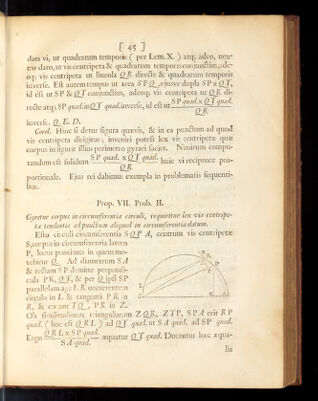 [ 45 ]
dara vi, ut quadratum temporis ( per Lem. X. ) atq; adeo, neu-
tro dato, ut vis centripeta & quadratum temporis conjunctim, ade-
oq; vis centripeta ut lineola QR directe & quadratum temporis
inverse. Est autem tempus ut area SPQ, ejusve dupla SP x QT,
id est ut SP & QT conjunctim, adeoq; vis centripeta ut QR di-
recte atq; SP quad. in QT quad. inverse, id est ut SP quad. x QT quad.
QR
inverse. Q. E. D.
Corol. Hinc si detur figura quævis, & in ea punctum ad quod
vis centripeta dirigitur; inveniri potest lex vis centripetæ quæ
corpus in figuræ illius perimetro gyrari faciet. Nimirum compu-
tandum est solidum SP quad. x QT quad. huic vi reciproce pro-
QR
portionale. Ejus rei dabimus exempla in problematis sequenti-
bus.
Prop. VII. Prob. II.
Gyretur corpus in circumferentia circuli, requiritur lex vis centripe-
tæ tendentis ad punctum aliquod in circumferentia datum.
Esto circuli circumferentia SQPA, centrum vis centripetæ
S, corpus in circumferentia latum
P, locus proximus in quem mo-
vebitur Q. Ad diametrum SA
& rectam SP demitte perpendi-
cula PK, QT, & per Q ipsi SP
parallelam age LR occurrentem
circulo in L & tangenti PR in
R, & coeant TQ, PR in Z.
Ob similitudinem triangulorum ZQR, ZTP, SPA erit RP
quad. ( hoc est QRL ) ad QT quad. ut SA quad. ad SP quad.
Ergo QRL x SP quad. æquatur QT quad. Ducantur hæc æqua-
SA quad.
lia